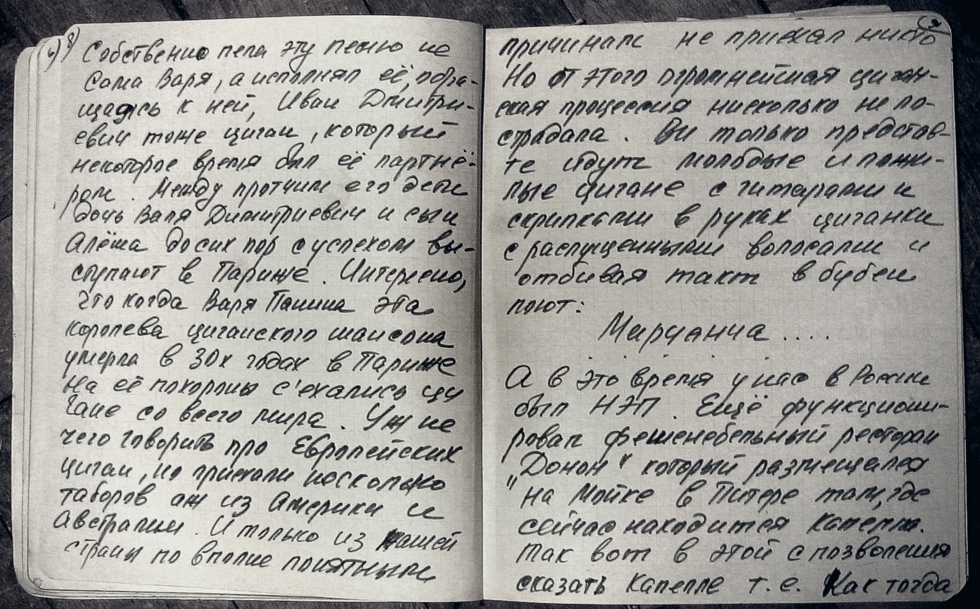 4) 8) Собственно пела эту песню не
сама Варя, а исполнял её, обра-
щаясь к ней, Иван Дмитри-
евич тоже цыган, который
некоторое время был её партнё-
ром. Между протчим его дети
дочь Валя Димитриевич и сын
Алёша до сих пор с успехом вы-
ступают в Париже. Интересно,
что когда Варя Панина эта
королева циганского шансона
умерла в 30х годах в Париже
на её похороны с'ехались ци
гане со всего мира. Уж не
чего говорить про Европейских
циган, но приехали несколько
таборов аж из Америки и
Австралии. И только из нашей
страны по вполне понятным
причинам не приехал никто
Но от этого огромнейшая циган-
ская процессия нисколько не по-
страдала. Вы только представ-
те идут молодые и пожи-
лые цигане с гитарами и
скрипками в руках циганки
с распущенными волосами и
отбивая такт в бубен
поют:
Марианча ....
А в это время у нас в России
был НЭП. Ещё функциони-
ровал фешенебельный ресторан
"Донон" который размещался
на Мойке в Питере там, где
сейчас находится Капелла.
Так вот в этой с позволения
сказать капелле т.е. как тогда